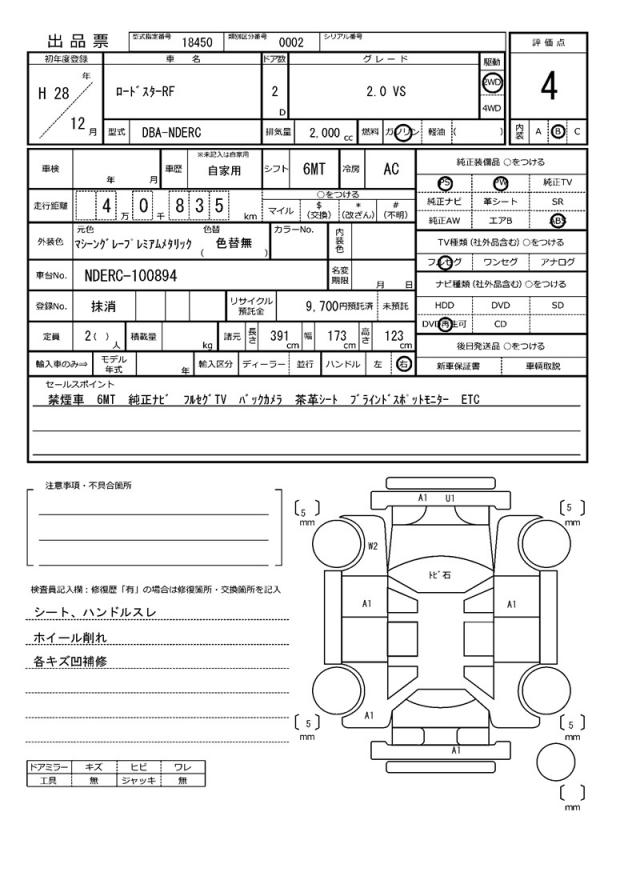 出品票 型式指定番号 18450 類別区分番号 0002 シリアル番号
評価点
4
内装 A B C
初年度登録 車名 ドア数 グレード 駆動
H 28 年 12 月 ﾛｰﾄﾞｽﾀｰRF 2 D 2.0 VS 2WD 4WD
型式 DBA-NDERC 排気量 2,000 cc 燃料 ガソリン 軽油 ( )
車検 年 月 車歴 ※未記入は自家用 自家用 シフト 6MT 冷房 AC
走行距離 4 万 0 千 8 3 5 km ○をつける
マイル $(交換) *(改ざん) #(不明)
外装色 元色 ﾏｼｰﾝｸﾞﾚｰﾌﾟﾚﾐｱﾑﾒﾀﾘｯｸ 色替 ( 色替無 ) カラーNo. 内装色
車台No. NDERC-100894 名変期限 月 日
登録No. 抹消 リサイクル預託金 9,700円預託済 未預託
定員 2( ) 人 積載量 kg 諸元 長さ 391 cm 幅 173 cm 高さ 123 cm
輸入車のみ⇒ モデル年式 年 輸入区分 ディーラー 並行 ハンドル 左 右
純正装備品 ○をつける
PS PW 純正TV
純正ナビ 革シート SR
純正AW エアB ABS
TV種類(社外品含む)○をつける
フルセグ ワンセグ アナログ
ナビ種類(社外品含む)○をつける
HDD DVD SD
DVD再生可 CD
後日発送品 ○をつける
新車保証書 車輌取説
セールスポイント
禁煙車 6MT 純正ﾅﾋﾞ ﾌﾙｾｸﾞTV ﾊﾞｯｸｶﾒﾗ 茶革シート ﾌﾞﾗｲﾝﾄﾞｽﾎﾟｯﾄﾓﾆﾀｰ ETC
注意事項・不具合箇所
検査員記入欄：修復歴「有」の場合は修復箇所・交換箇所を記入
シート、ハンドルスレ
ホイール削れ
各キズ凹補修
ドアミラー キズ ヒビ ワレ
工具 無 ジャッキ 無
A1 U1
[ 5 ] mm
[ 5 ] mm
W2
ﾄﾋﾞ石
A1 A1
A1
[ 5 ] mm
[ 5 ] mm
A1
[ ] mm